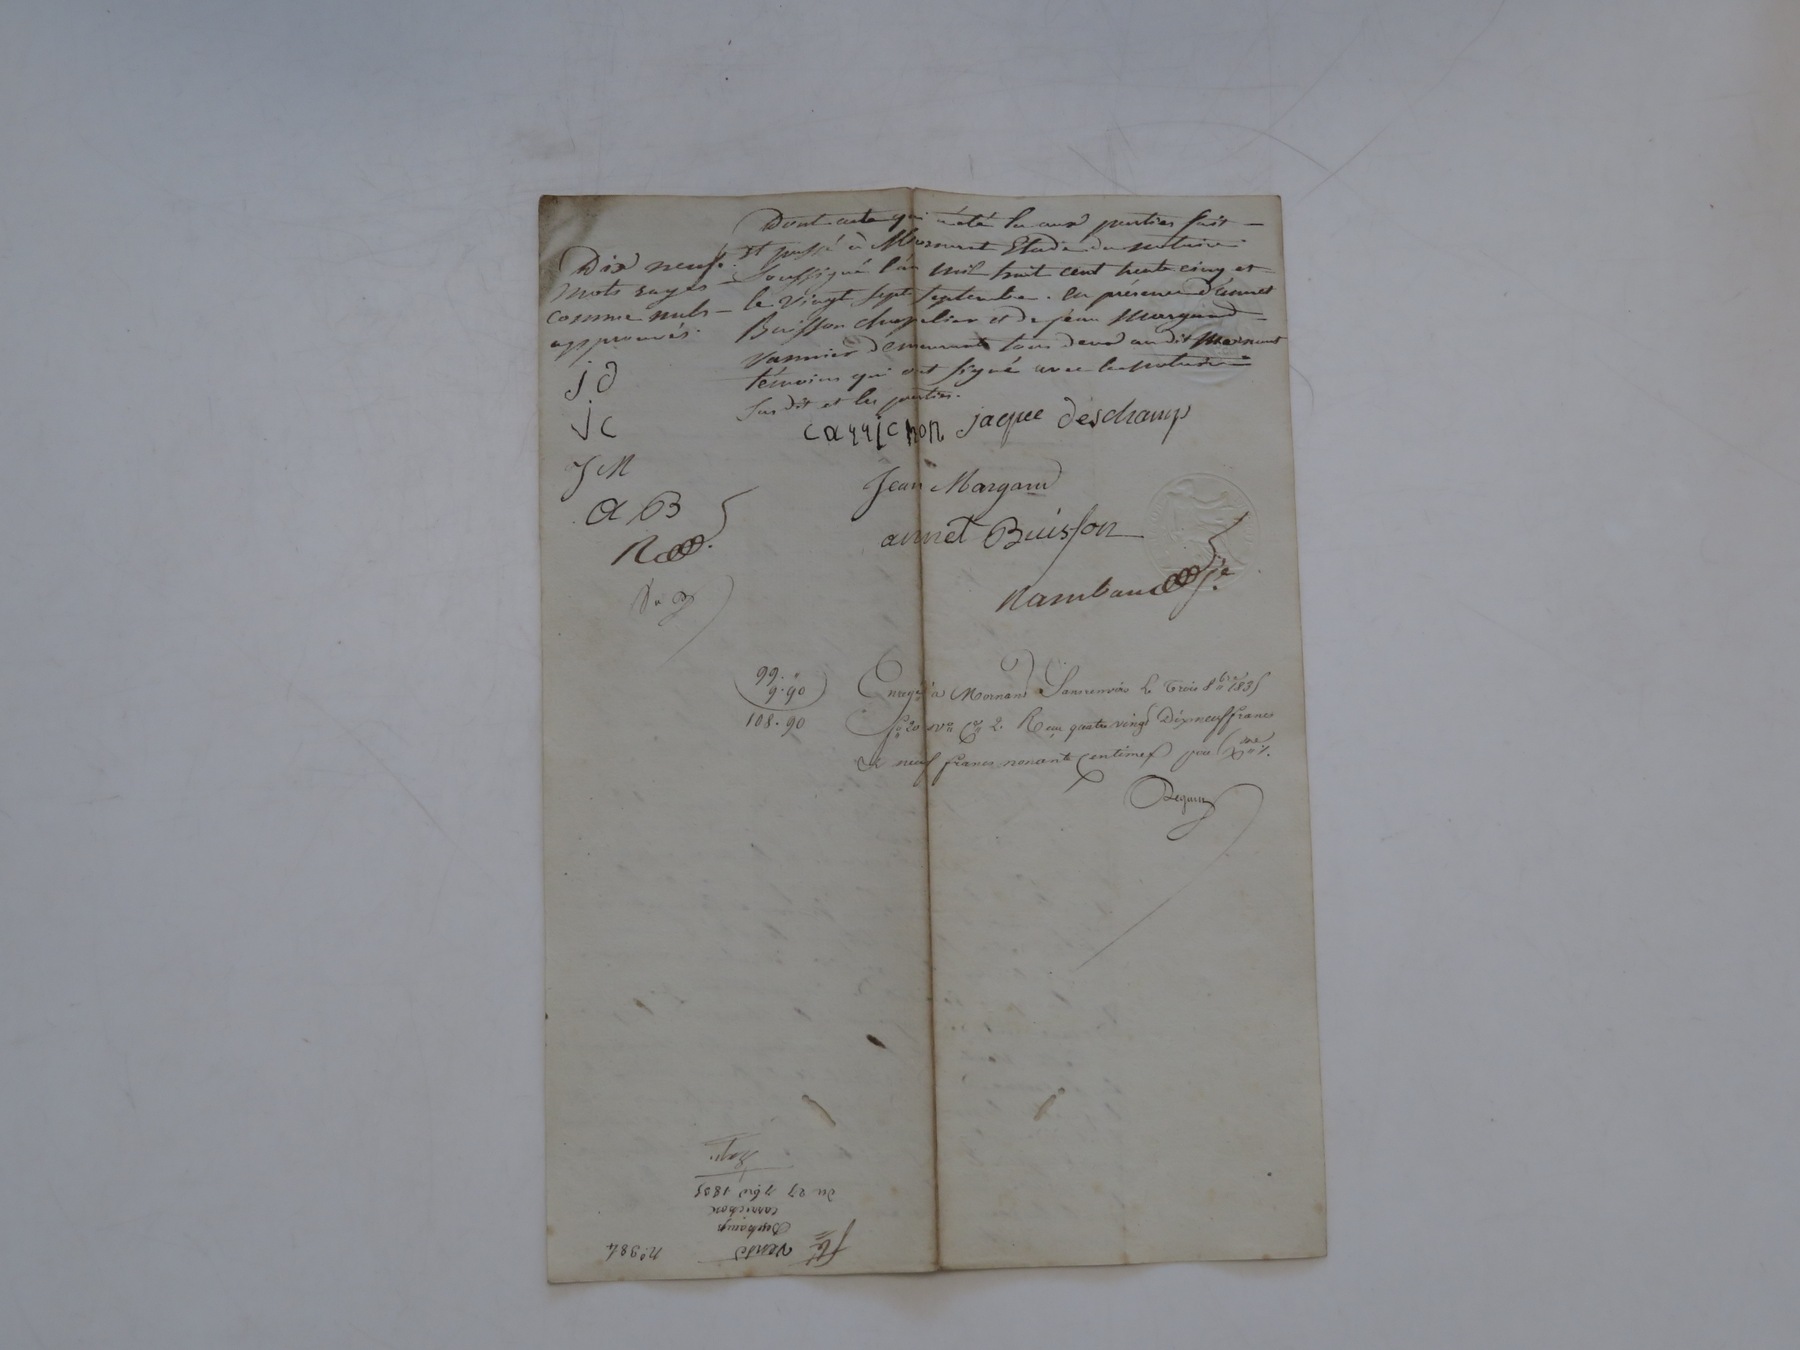 Dont acte qui a été lu aux parties fait
et passé à Mornant Etude du notaire
soussigné l'an mil huit cent trente cinq et
le vingt sept septembre. en présence d'annet
Buisson chapelier et de jean Margand
vannier demeurant tous deux audit Mornant
témoins qui ont signé avec le notaire
susdit et les parties.
Dix neuf
mots rayés
comme nuls
approuvés.
jd
jc
JM
AB
carrichon jaque deschamp
Jean Margand
annet Buisson
Rambaud
99.
9.90
108.90
Enregé à Mornant le trois 8bre 1835
fo 20 vo Co 2. Reçu quatre vingt Dix neuf francs
et neuf francs nonante centimes pour
Vente
Deschamp
carrichon
du 27 7bre 1835
No 984